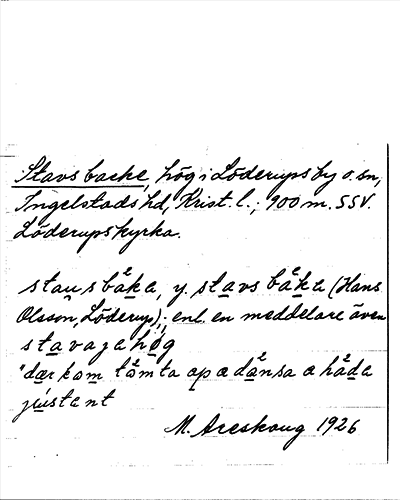 Stavs backe, hög i Löderups by o. sn,
Ingelstads hd, Krist. l.; 900 m. SSV.
Löderups kyrka.
staus båka, y. stavs båka (Hans
Olsson, Löderup); enl. en meddelare även
stavaga høg
"dær kom tåmta opæ dansa æ håde
justent
M. Areskoug 1926